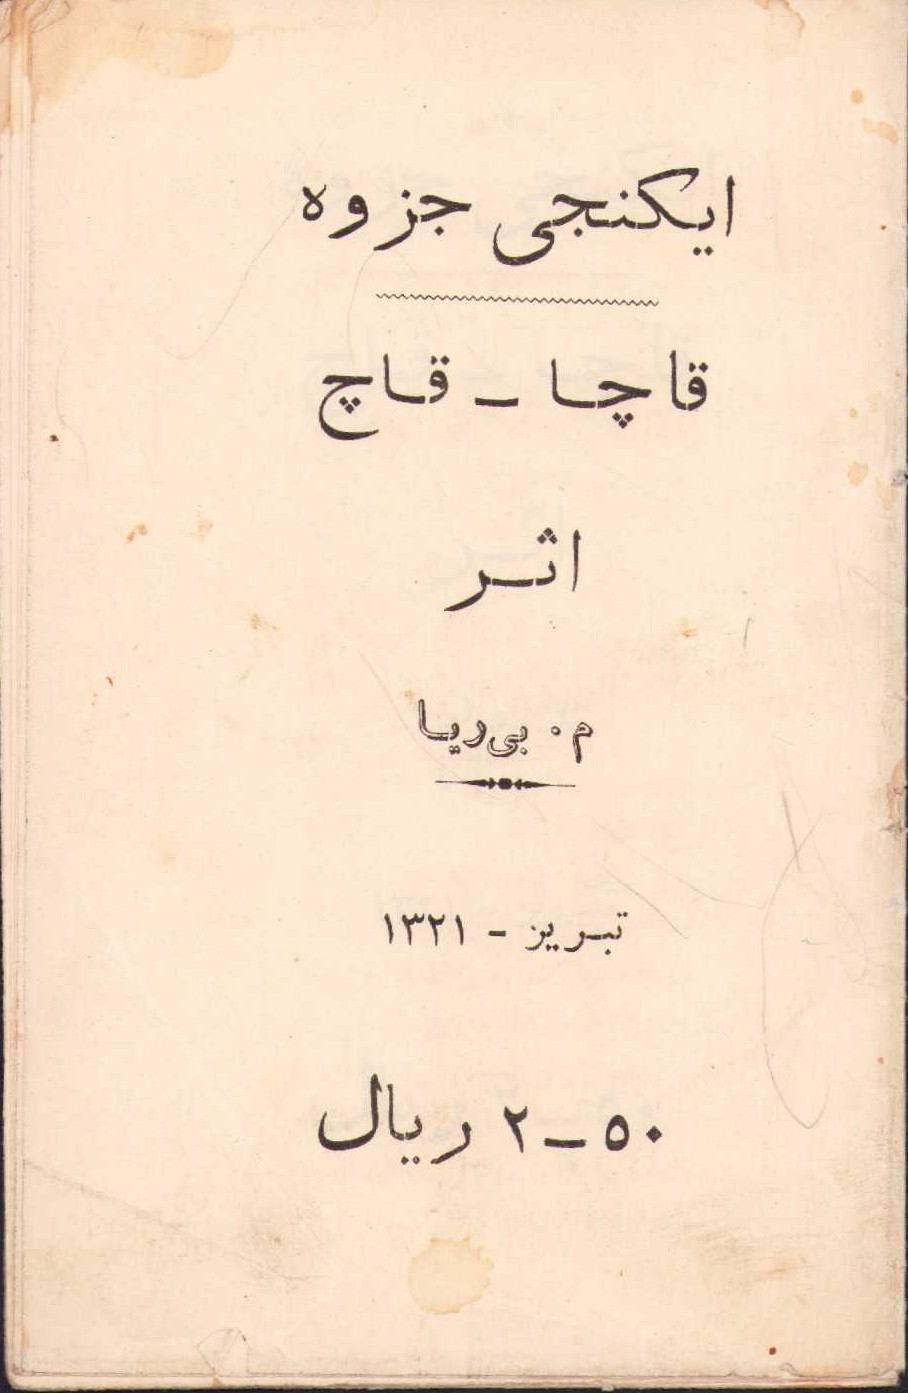 ایکنجی جزوه
قاچا - قاچ
اثر
م. بی‌ریا
تبریز - ۱۳۲۱
۲-۵۰ ریال